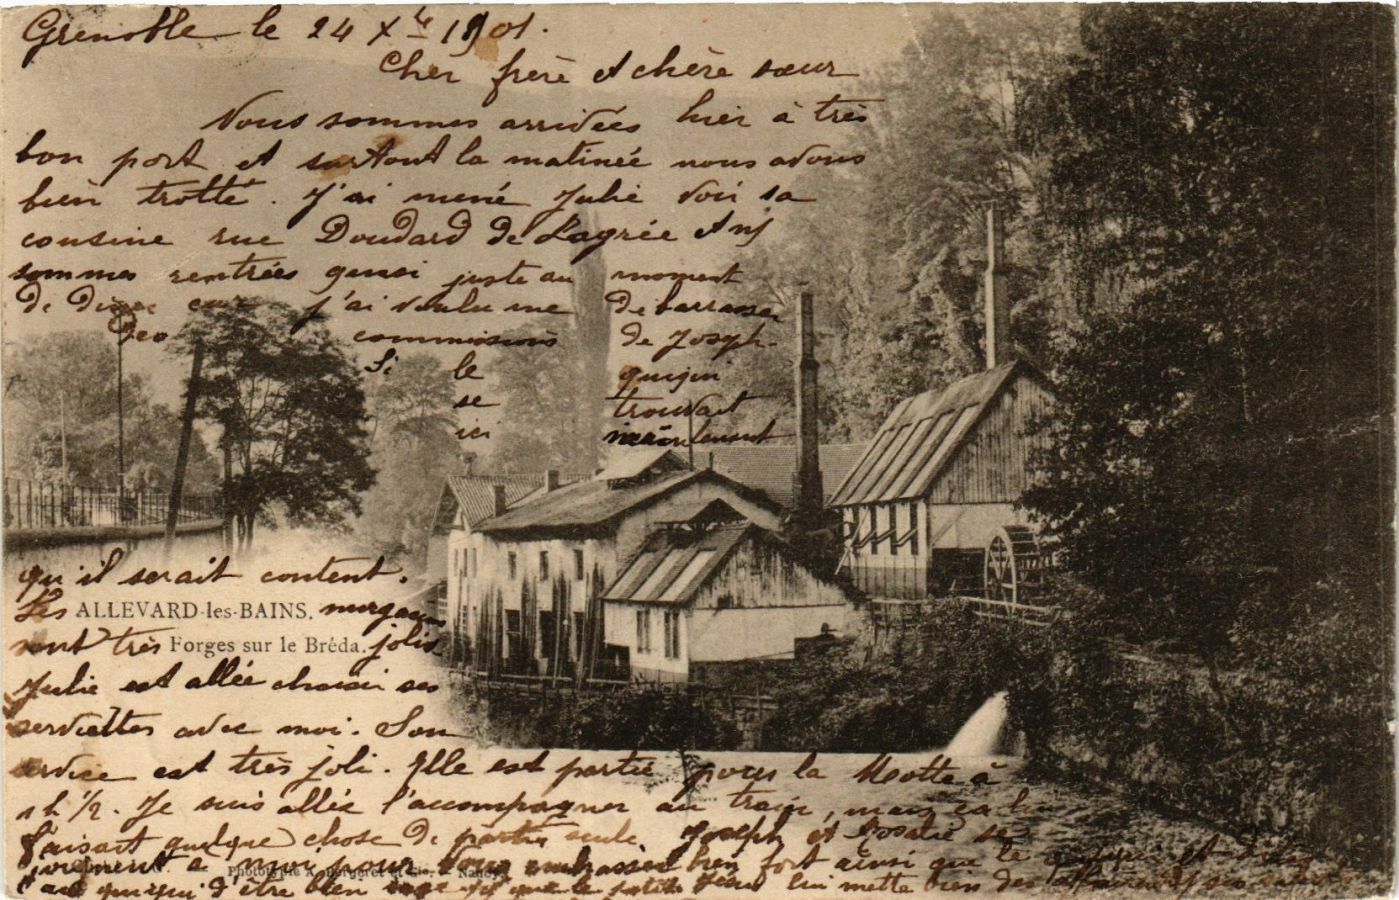 Grenoble le 24 Xbre 1901.
Cher frère et chère sœur
Nous sommes arrivées hier à très
bon port et surtout la matinée nous avons
bien trotté. J'ai mené Julie voir sa
cousine rue Doudard de Lagrée et nous
sommes rentrées quasi juste au moment
de j'ai voulu me débarrasser
des commissions de Joseph.
Si le quiqui
se trouvait
ici maintenant
qu'il serait content.
Les
ALLEVARD-les-BAINS.
sont très
Forges sur le Bréda.
jolis
Julie est allée choisir ses
serviettes avec moi. Son
service est très joli. Elle est partie pour la Motte à
1h ½. Je suis allée l'accompagner au train, mais ça lui
faisait quelque chose de partir seule. Joseph et Rosalie se
joignent à moi pour vous embrasser bien fort ainsi que le quiqui et
Phototypie A. Bergeret et Cie. - Nancy
au quiqui d'être bien sage et que le petit lui mette bien des